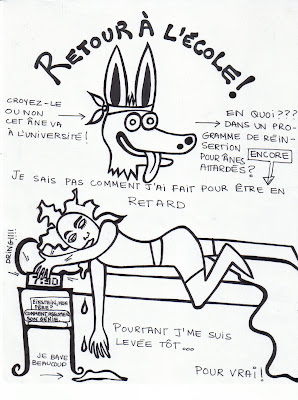 RETOUR À L'ÉCOLE!
CROYEZ-LE
OU NON
CET ÂNE VA
À L'UNIVERSITÉ!
EN QUOI???
DANS UN PRO-
GRAMME DE RÉIN-
SERTION
POUR ÂNES
ATTARDÉS?
ENCORE
JE SAIS PAS COMMENT J'AI FAIT POUR ÊTRE EN
RETARD
DRING!!!!
7:30
EINSTEIN, MON
PÈRE?
COMMENT ASSUMER
SON GÉNIE.
JE BAVE
BEAUCOUP
POURTANT J'ME SUIS
LEVÉE TÔT...
POUR VRAI!